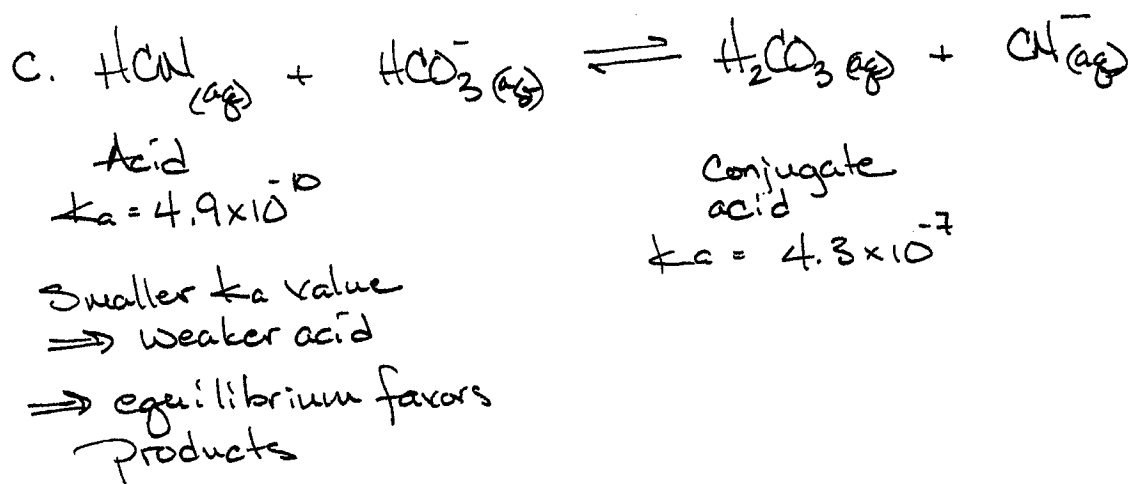 C. HCN(aq) + HCO₃⁻(aq) ⇌ H₂CO₃(aq) + CN⁻(aq)
Acid
Ka = 4.9×10⁻¹⁰
Conjugate
acid
Ka = 4.3×10⁻⁷
Smaller Ka value
⇒ weaker acid
⇒ equilibrium favors
products